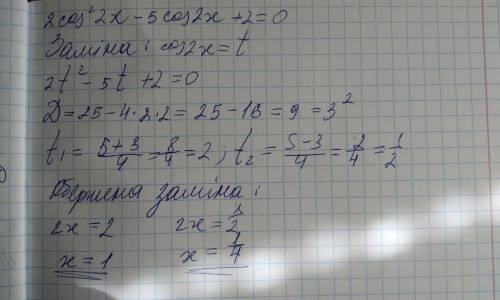 2cos²2x - 5cos2x + 2 = 0
Заміна: cos2x = t
2t² - 5t + 2 = 0
D = 25 - 4 · 2 · 2 = 25 - 16 = 9 = 3²
t₁ = (5+3)/4 = 8/4 = 2; t₂ = (5-3)/4 = 2/4 = 1/2
Обернена заміна:
2x = 2 2x = 1/2
x = 1 x = 1/4